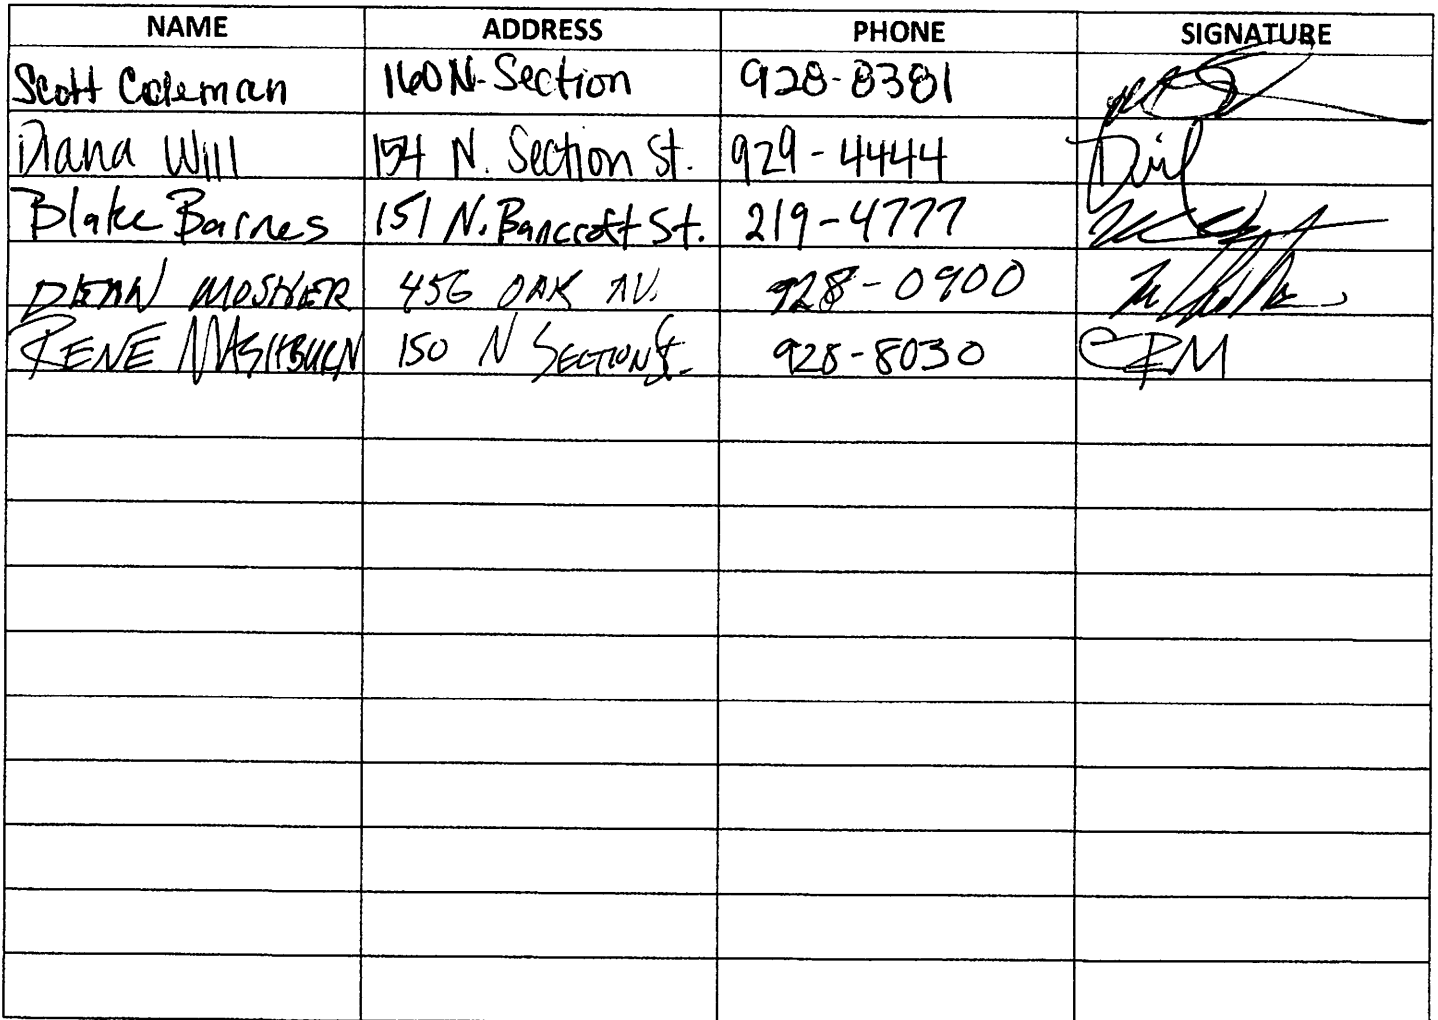 NAME ADDRESS PHONE SIGNATURE
Scott Coleman 160 N. Section 928-8381
Diana Will 154 N. Section St. 929-4444
Blake Barnes 151 N. Bancroft St. 219-4777
DEAN MOSHER 456 OAK AV. 928-0900
RENE MASHBURN 150 N SECTION St. 928-8030